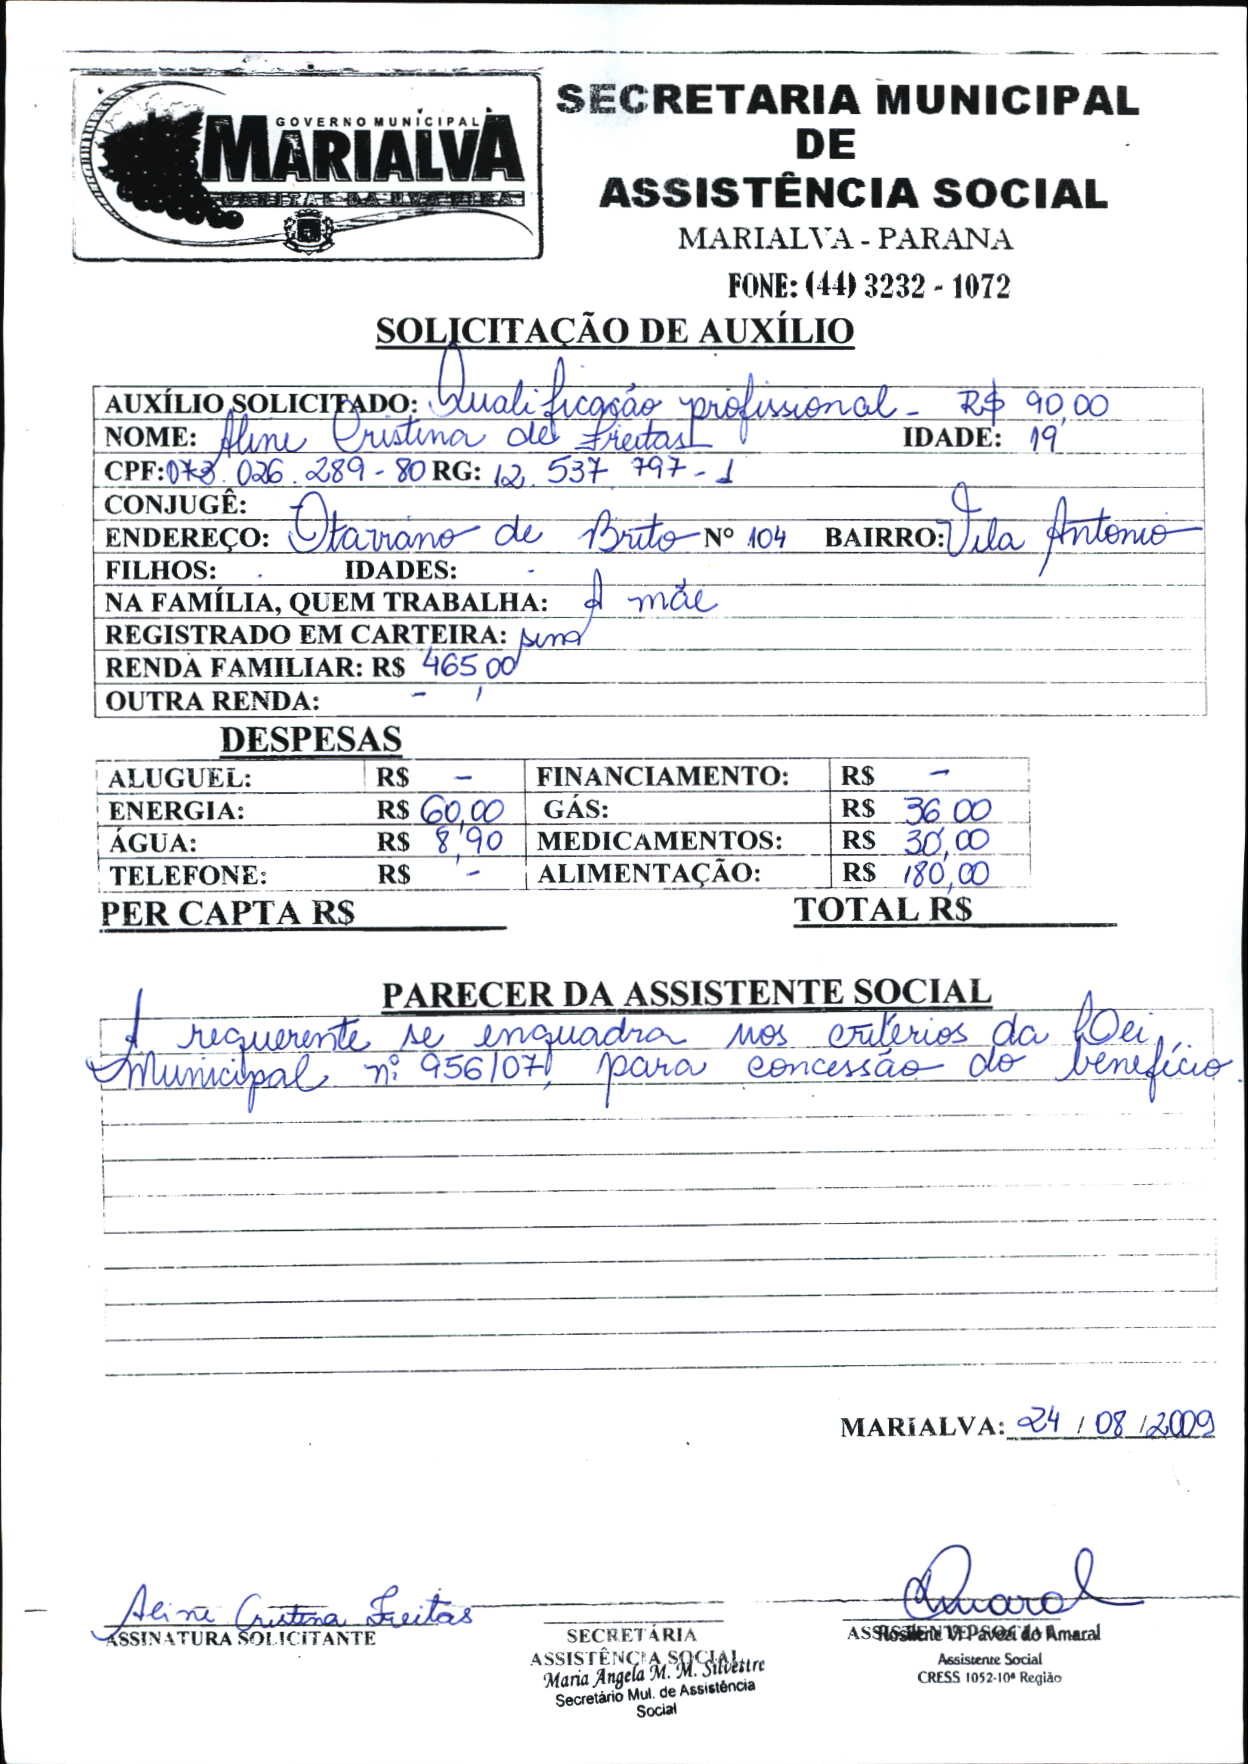 GOVERNO MUNICIPAL
MARIALVA
CAPITAL DA UVA FINA
SECRETARIA MUNICIPAL
DE
ASSISTÊNCIA SOCIAL
MARIALVA - PARANA
FONE: (44) 3232 - 1072
SOLICITAÇÃO DE AUXÍLIO
AUXÍLIO SOLICITADO: Qualificação profissional - R$ 90,00
NOME: Aline Cristina de Freitas IDADE: 19
CPF: 073.026.289-80 RG: 12.537.797-1
CONJUGÊ: -
ENDEREÇO: Otaviano de Brito Nº 104 BAIRRO: Vila Antonio
FILHOS: . IDADES: -
NA FAMÍLIA, QUEM TRABALHA: A mãe
REGISTRADO EM CARTEIRA: sim
RENDA FAMILIAR: R$ 465,00
OUTRA RENDA: -
DESPESAS
ALUGUEL: R$ - FINANCIAMENTO: R$ -
ENERGIA: R$ 60,00 GÁS: R$ 36,00
ÁGUA: R$ 8,90 MEDICAMENTOS: R$ 30,00
TELEFONE: R$ - ALIMENTAÇÃO: R$ 180,00
PER CAPTA R$ TOTAL R$
PARECER DA ASSISTENTE SOCIAL
A requerente se enquadra nos critérios da Lei
Municipal nº 956/07, para concessão do benefício.
MARIALVA: 24 / 08 / 2009
Aline Cristina Freitas Amaral
ASSINATURA SOLICITANTE SECRETÁRIA ASSISTENTE SOCIAL
Rosilene V. Pavezi do Amaral
ASSISTÊNCIA SOCIAL Assistente Social
Maria Angela M. M. Silvestre CRESS 1052-10ª Região
Secretário Mul. de Assistência
Social